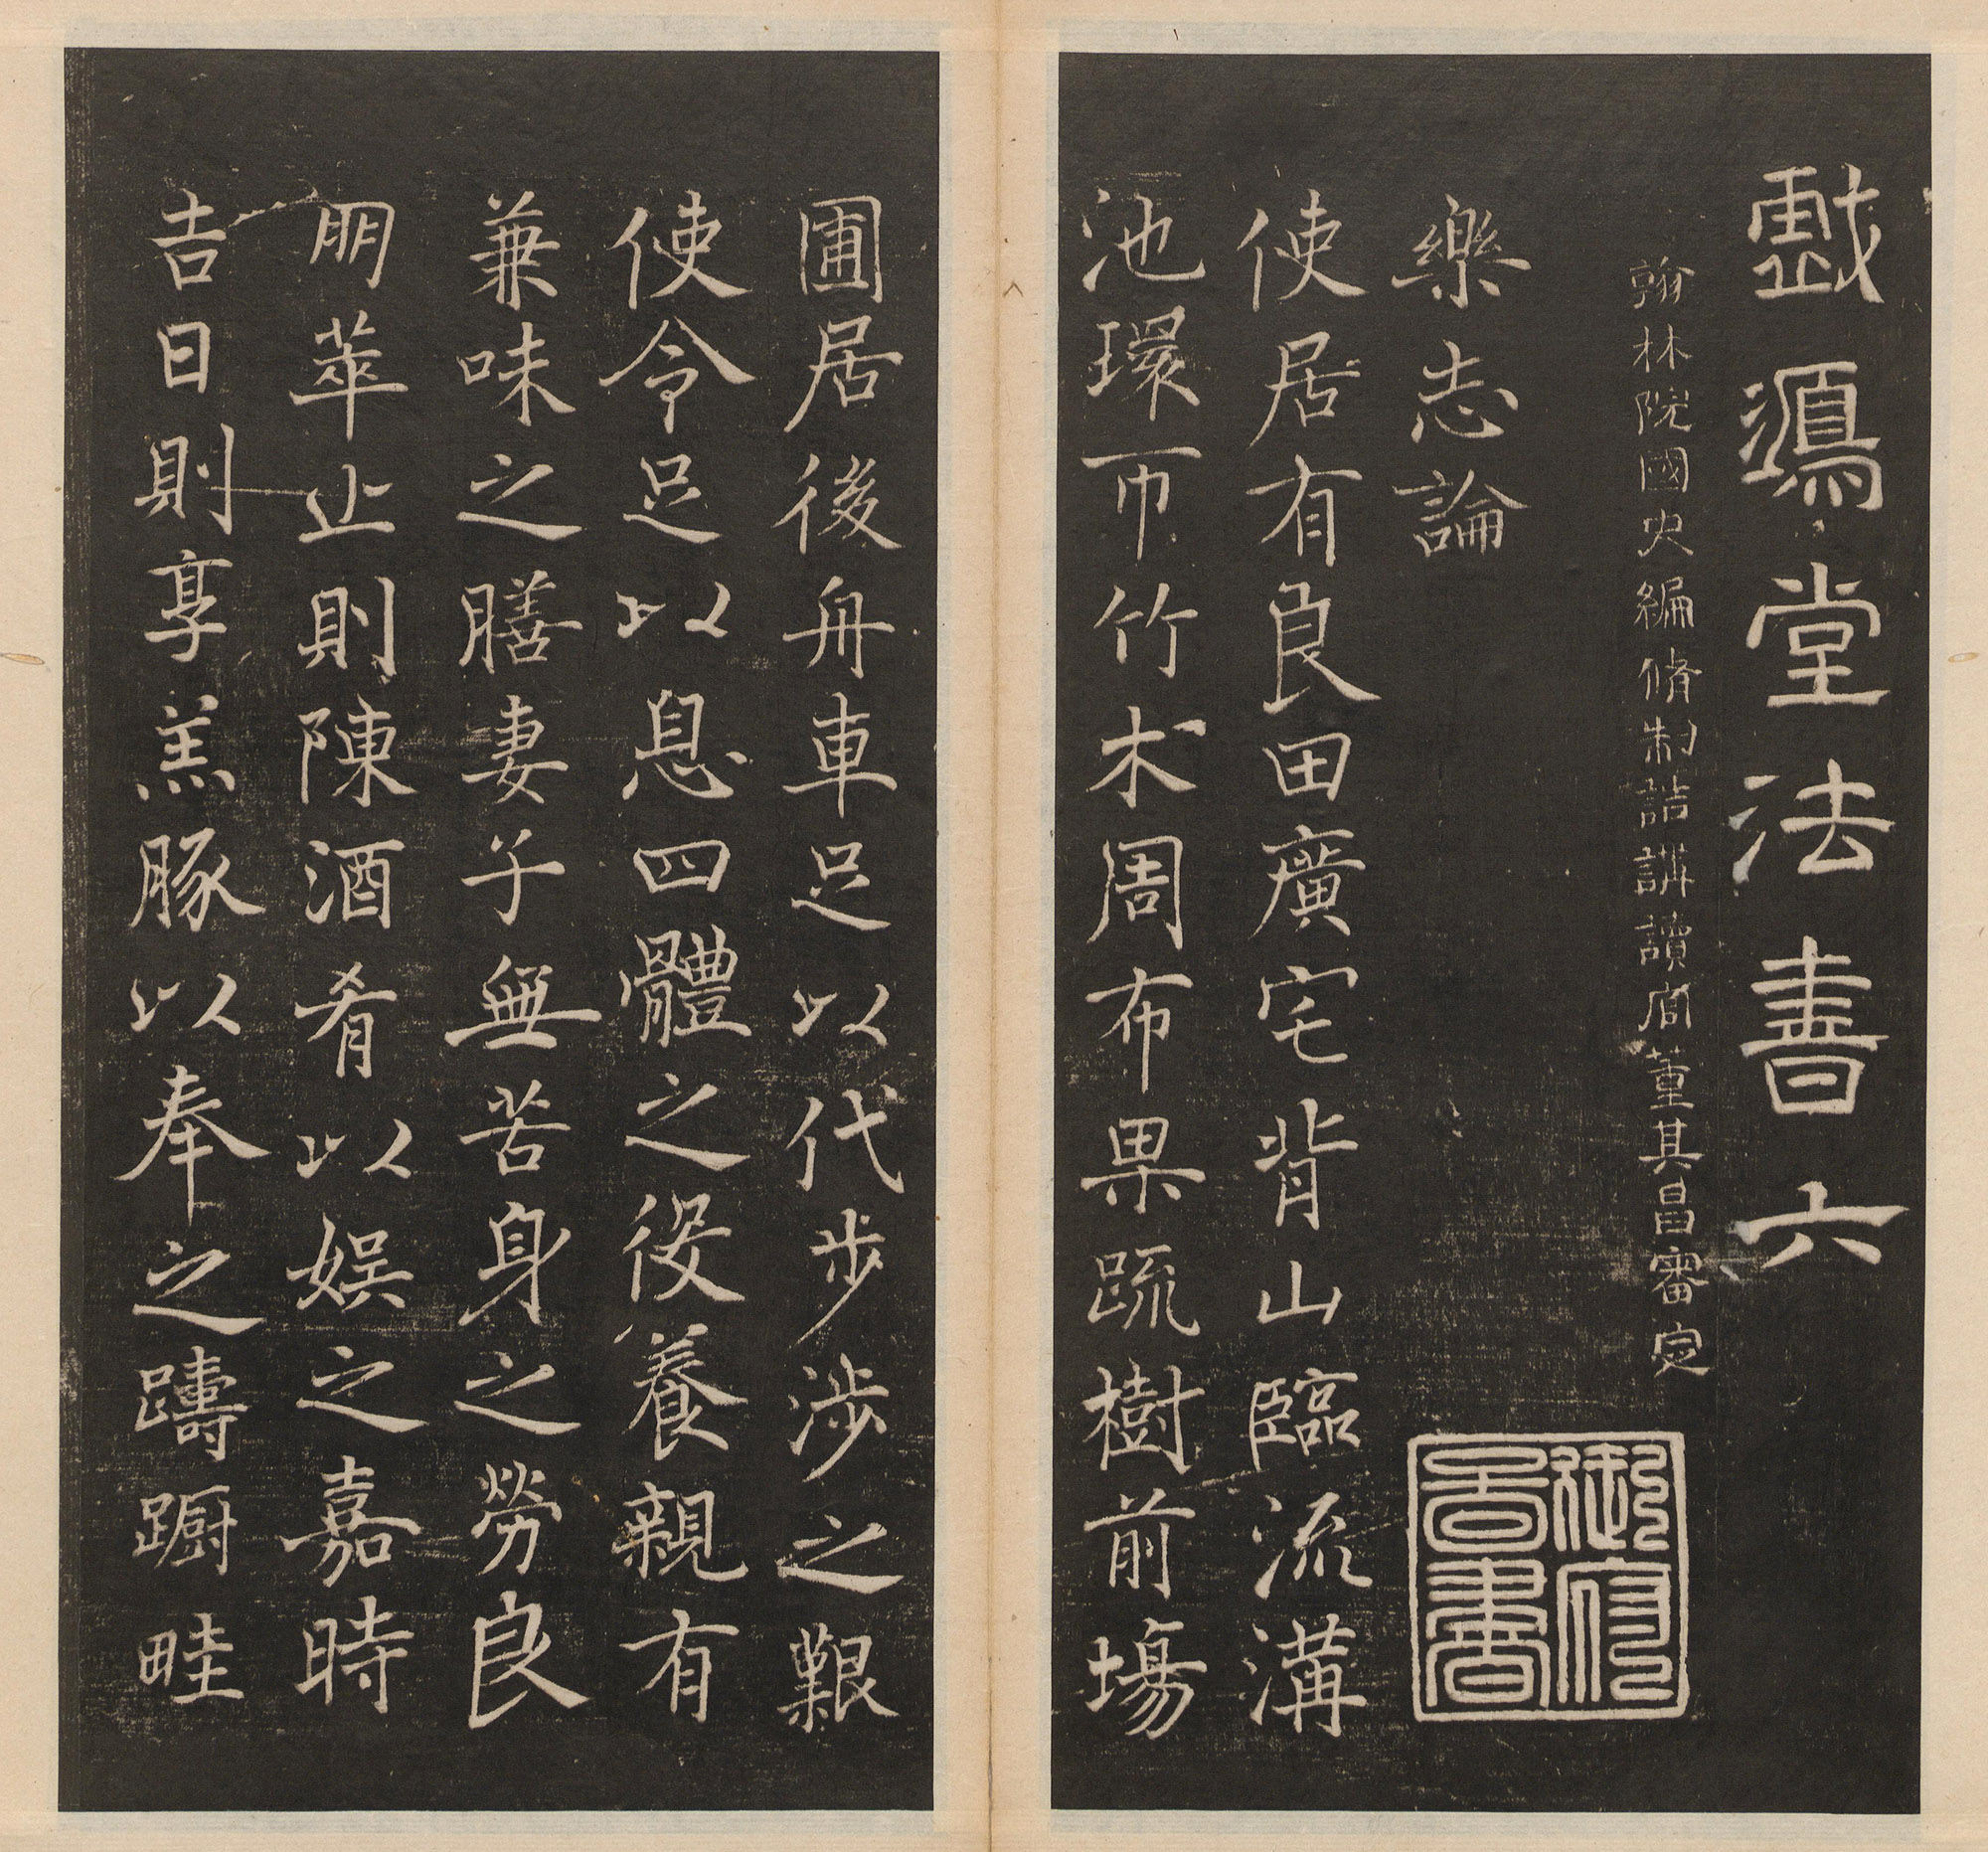 戲鴻堂法書六
翰林院國史編脩制誥講讀官董其昌審定
御府圖書
樂志論
使居有良田廣宅背山臨流溝
池環帀竹木周布果蔬樹前場
圃居後舟車足以代步涉之艱
使令足以息四體之役養親有
兼味之膳妻子無苦身之勞良
朋萃止則陳酒肴以娛之嘉時
吉日則享羔豚以奉之躊躕畦